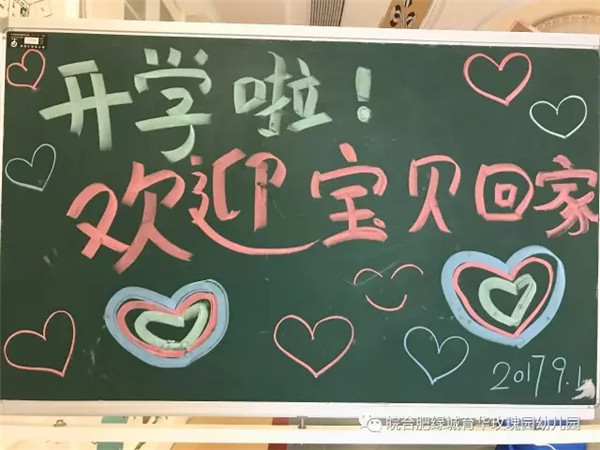 开学啦！
欢迎宝贝回家
2017 9.1
皖合肥绿城育华玫瑰园幼儿园